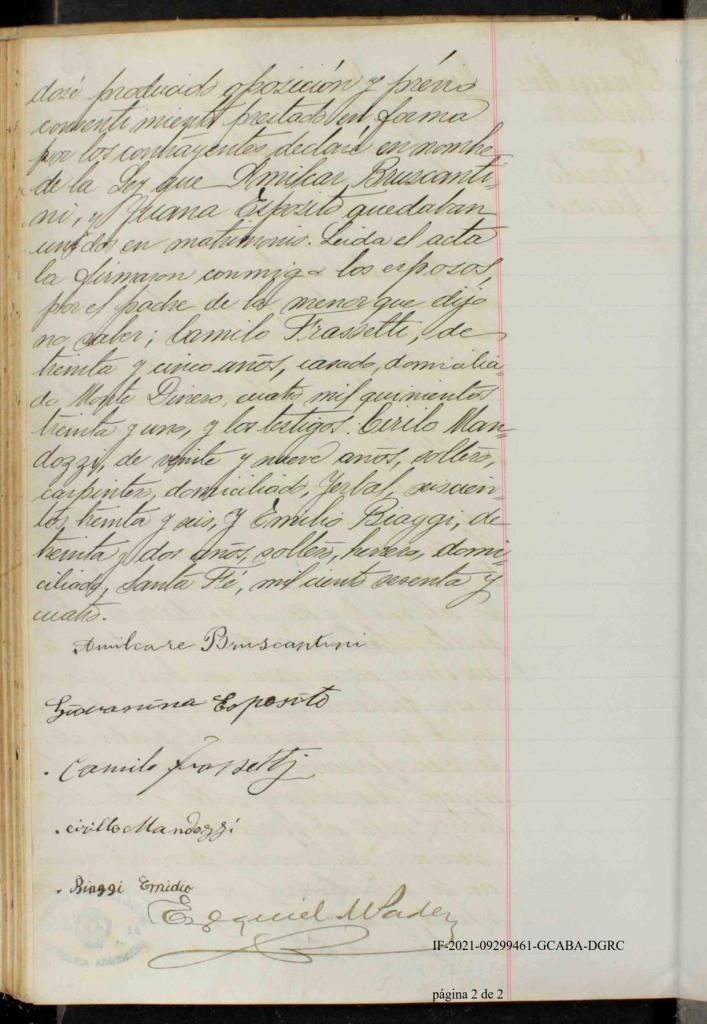 dose producido oposición y prévio
consentimiento prestado en forma
por los contrayentes, declaré en nombre
de la Ley que Amilcar Bruscanti-
ni, y Juana Esposito quedaban
unidos en matrimonio. Leida el acta
la firmaron conmigo los esposos,
por el padre de la menor que dijo
no saber; Camilo Frassetti, de
treinta y cinco años, casado, domicilia-
do Monte Dinero, cuatro mil quinientos
treinta y uno, y los testigos: Cirilo Man-
dozzi, de veinte y nueve años, soltero,
carpintero, domiciliado, Yerbal, seiscien-
tos treinta y seis, y Emilio Biaggi, de
treinta y dos años, soltero, herrero, domi-
ciliado, Santa Fé, mil ciento sesenta y
cuatro.
Amilcare Bruscantini
Giovannina Esposito
Camilo Frassetti
Cirillo Mandozzi
Biaggi Emidio
Ezequiel
IF-2021-09299461-GCABA-DGRC
página 2 de 2